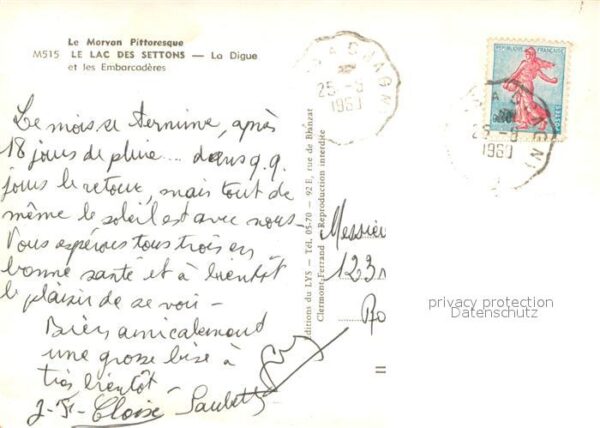 Le Morvan Pittoresque
M515 LE LAC DES SETTONS — La Digue
et les Embarcadères
Le mois se termine, après
18 jours de pluie... dans q.q.
jours le retour, mais tout de
même le soleil est avec nous.
Vous espérons tous trois en
bonne santé et à bientôt
le plaisir de se voir -
Bien amicalement
une grosse bise à
très bientôt -
J-F- Eloïse
Editions du LYS - Tél. 05-70 - 92 E, rue de Blanzat
Clermont-Ferrand - Reproduction interdite
25-9
1960
REPUBLIQUE FRANÇAISE
POSTES
25-9
1960
Messieu
123
Ro
privacy protection
Datenschutz